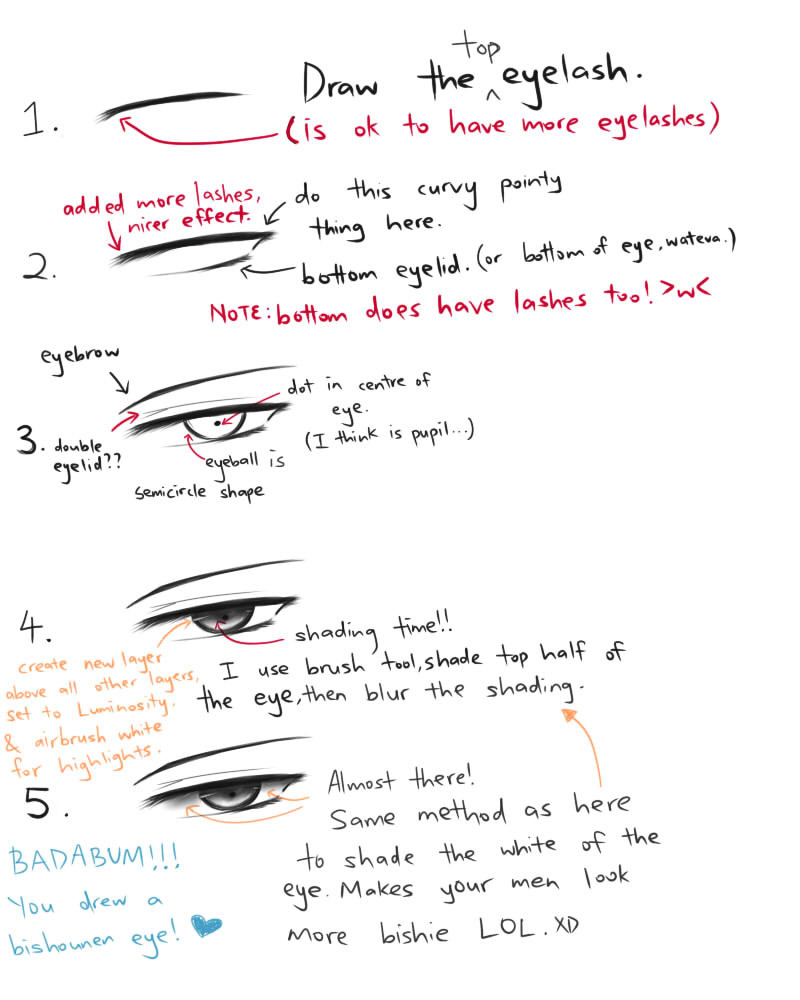 1.
Draw the top eyelash.
(is ok to have more eyelashes)
2.
added more lashes,
nicer effect.
do this curvy pointy
thing here.
bottom eyelid. (or bottom of eye, wateva.)
NOTE: bottom does have lashes too! >w<
3.
eyebrow
double
eyelid??
dot in centre of
eye.
(I think is pupil...)
eyeball is
semicircle shape
4.
create new layer
above all other layers,
set to Luminosity.
& airbrush white
for highlights.
shading time!!
I use brush tool, shade top half of
the eye, then blur the shading.
5.
Almost there!
Same method as here
to shade the white of the
eye. Makes your men look
more bishie LOL. XD
BADABUM!!!
You drew a
bishounen eye!